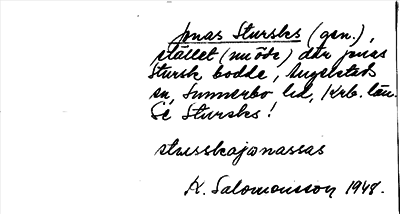 Jonas Stursks (gen.),
stället (möde) där Jonas
Stursk bodde, Angelstads
sn, Sunnerbo hd, Krb. län.
Se Stursks!
sturskajonassas
K. Salomonsson 1948.